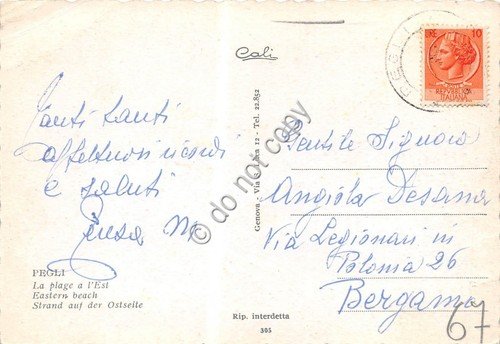 Cali
LIRE 10
POSTE
REPVBBLICA
ITALIANA
PEGLI
Tanti tanti
affettuosi ricordi
e saluti
PEGLI
La plage a l'Est
Eastern beach
Strand auf der Ostseite
Genova - Via 12 - Tel. 22.852
Rip. interdetta
305
Gentile Signora
Angiola Desana
Via Legionari in
Polonia 26
Bergamo
67
© do not copy